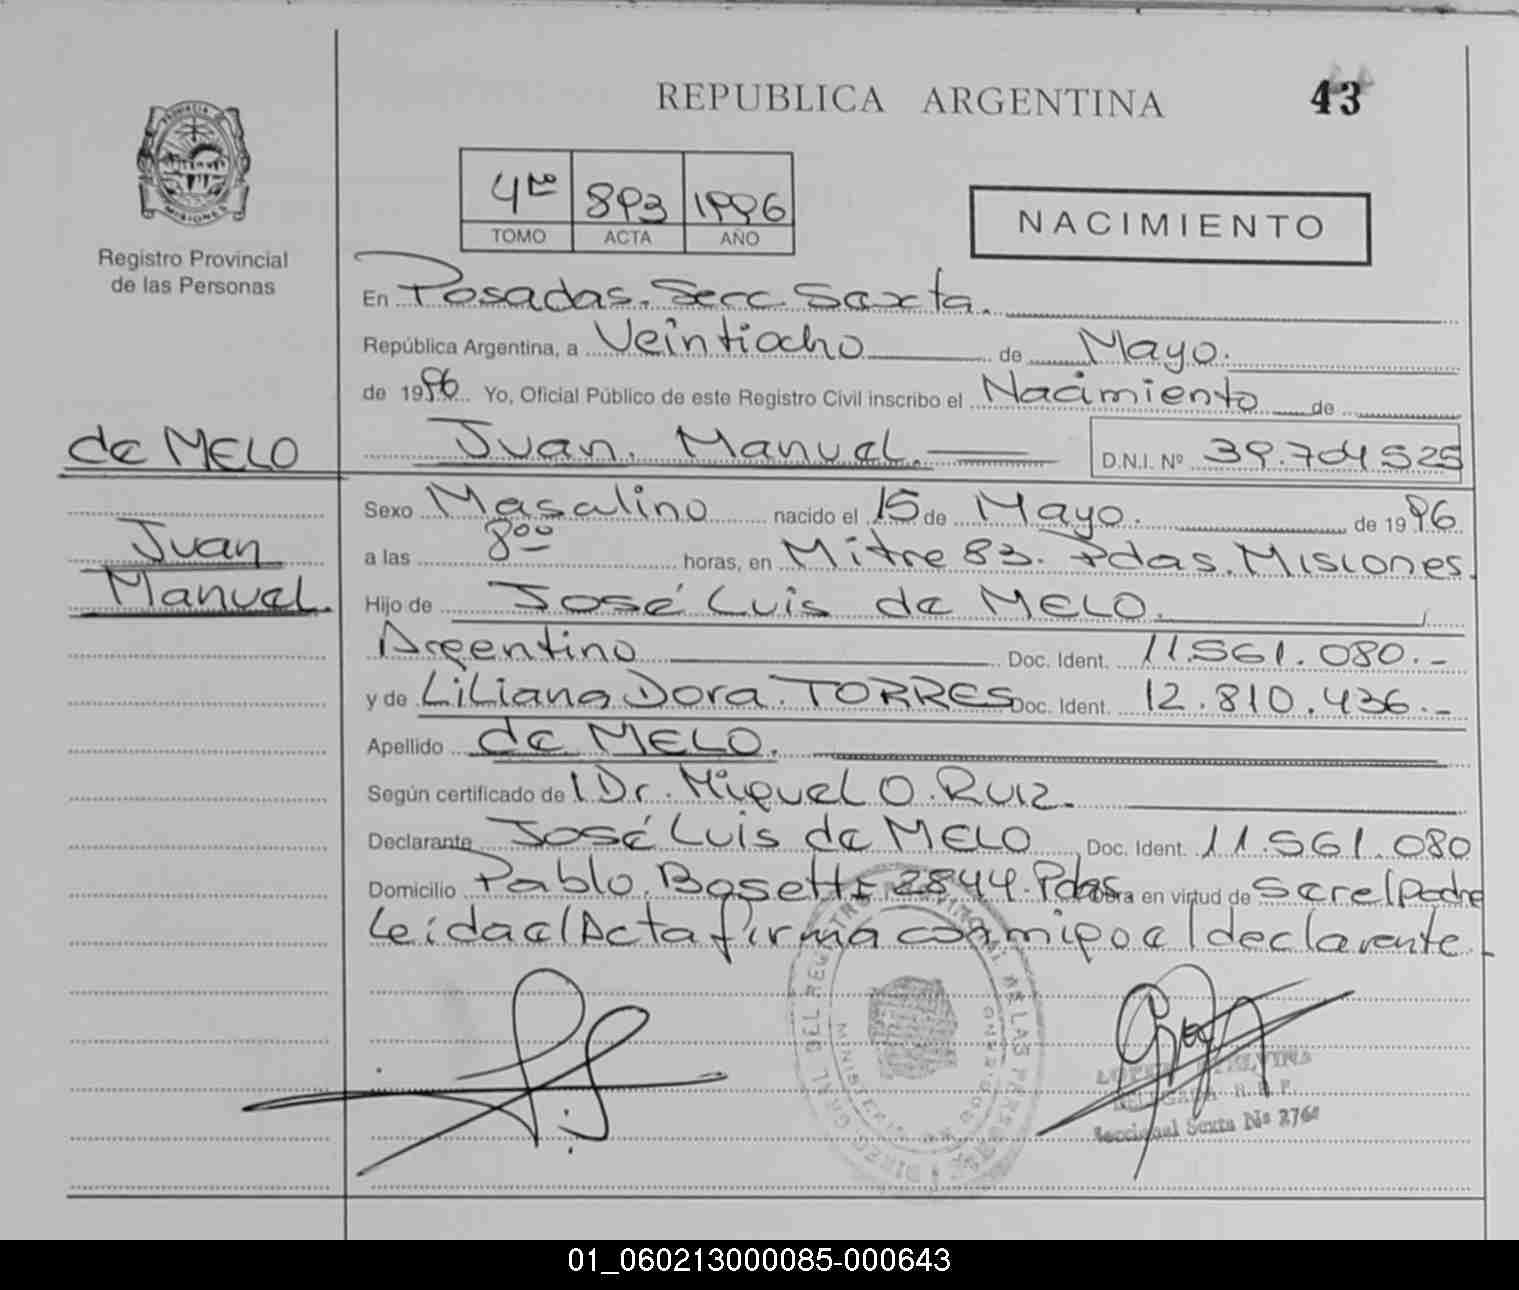 REPUBLICA ARGENTINA
43
PROVINCIA DE
MISIONES
Registro Provincial
de las Personas
4to 893 1996
TOMO ACTA AÑO
NACIMIENTO
En Posadas. Secc. Sexta.
República Argentina, a Veintiocho de Mayo.
de 1996 Yo, Oficial Público de este Registro Civil inscribo el Nacimiento de
de MELO
Juan Manuel. D.N.I. Nº 39.704525
Sexo Masculino nacido el 15 de Mayo. de 1996
Juan
Manuel.
a las 8 00 horas, en Mitre 83. Pdas. Misiones.
Hijo de José Luis de MELO.
Argentino Doc. Ident. 11.561.080.-
y de Liliana Dora TORRES Doc. Ident. 12.810.436.-
Apellido de MELO.
Según certificado de l Dr. Miguel O. Ruiz.
Declarante José Luis de MELO Doc. Ident. 11.561.080
Domicilio Pablo Bosetti 2844. Pdas Obra en virtud de Ser el padre
Leida el Acta firma conmigo el declarante.
DELEGADA R.P.P.
Seccional Sexta Nº 2764
01_060213000085-000643